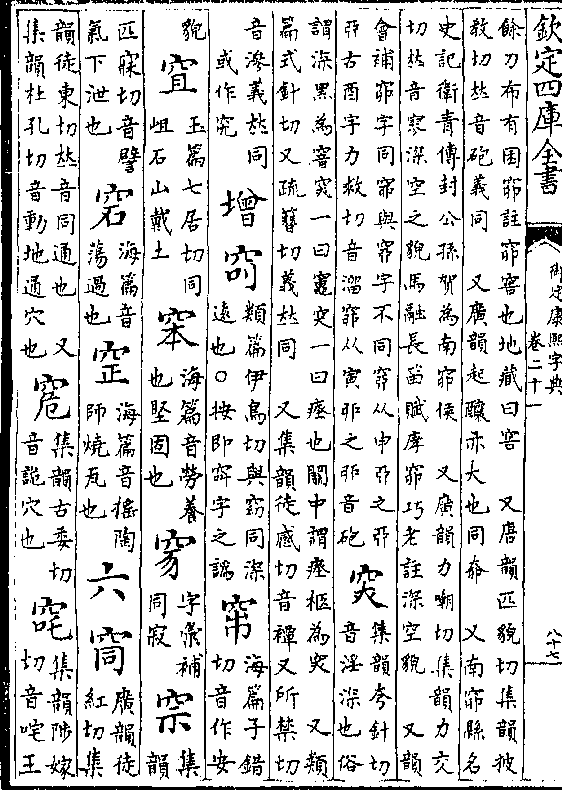 欽定四庫全書
御定康熙字典
卷二十一
八十七
餘刀布有囷窌註窌窖也地藏曰窖 又唐韻匹貌切集韻披
教切𠀤音砲義同 又廣韻起釀亦大也同奅 又南窌縣名
史記衛青傳封公孫賀為南窌侯 又廣韻力嘲切集韻力交
切𠀤音寥深空之貌馬融長笛賦庨窌巧老註深空貌 又韻
會補窌字同窷與窌字不同窌从中亞之亞
亞古酉字力救切音溜窌从寅戼之戼音砲
集韻岑針切
音淫深也俗
謂深黑為窨突一曰竈突一曰瘞也關中謂瘞柩為突 又類
篇式針切又疏簪切義𠀤同 又集韻徒感切音禫又所禁切
音滲義𠀤同
或作究
增
類篇伊鳥切與窈同深
遠也○按即窅字之譌
海篇子錯
切音作安
貌
玉篇七居切同
岨石山戴土
海篇音勞養
也堅固也
字彙補
同寂
集
韻
匹寐切音譬
氣下泄也
海篇音
蕩過也
海篇音搖陶
師燒瓦也
六
廣韻徒
紅切集
韻徒東切𠀤音同通也 又
集韻杜孔切音動地通穴也
集韻古委切
音詭穴也
集韻陟嫁
切音咤王